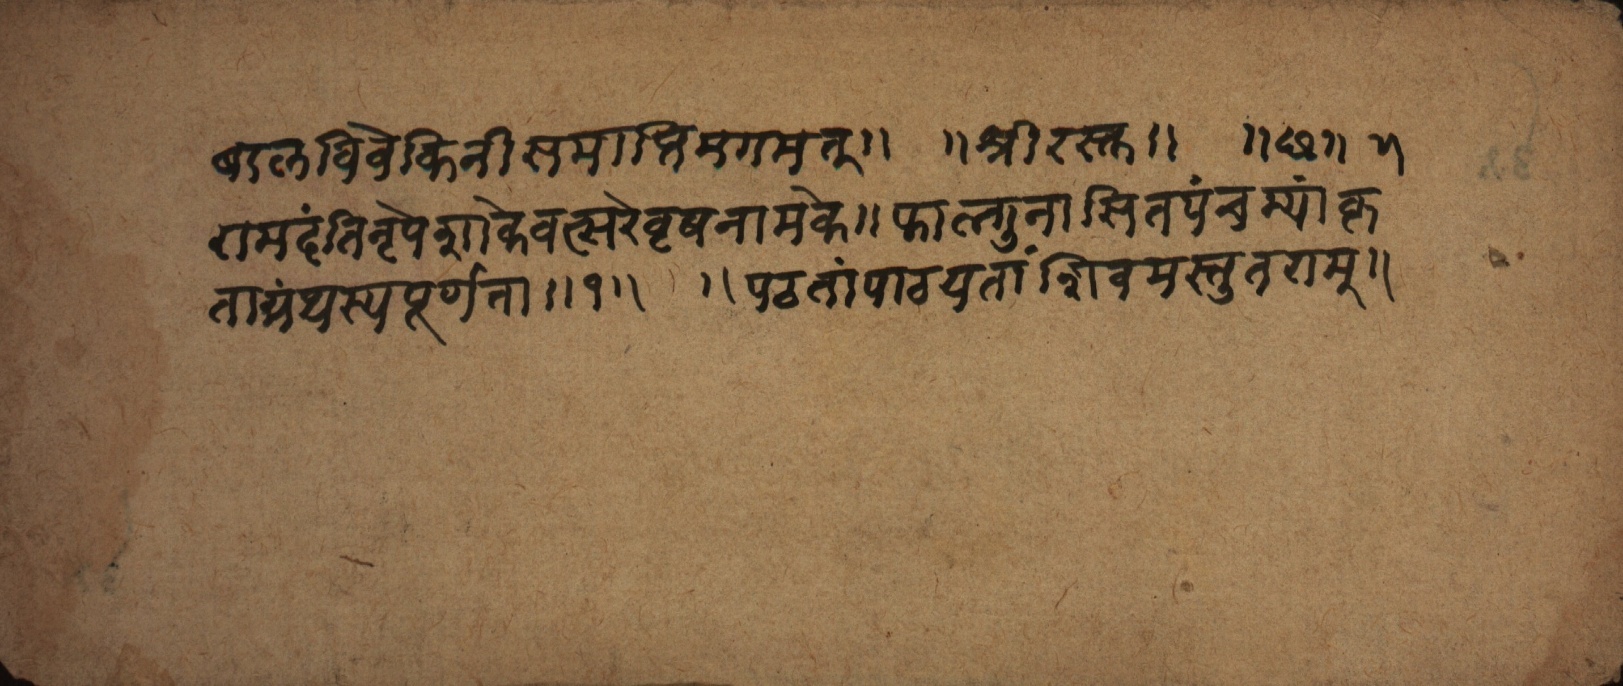 बालविवेकिनीसमाप्तिमगमत्॥ ॥श्रीरस्तु॥ ॥छ॥
रामदंतिनृपेशाकेवत्सरेवृषनामके॥फाल्गुनासितपंचम्यांकृ
ताग्रंथस्यपूर्णता॥१॥ ॥पठतांपाठयतांशिवमस्तुतराम्॥